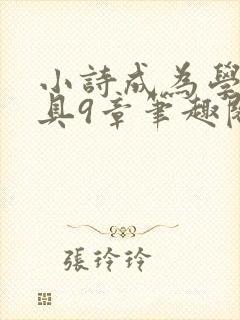 小詩成為學
具9章筆趣閣
張玲玲